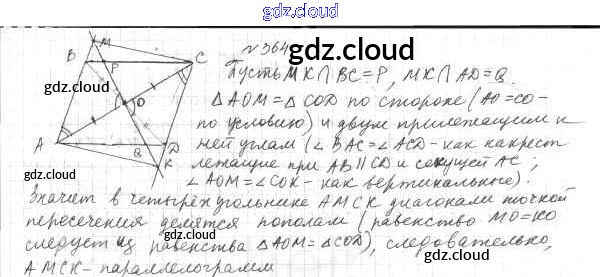 gdz.cloud
№364
gdz.cloud
M
B
P
C
Пусть MK ∩ BC = P, MK ∩ AD = Q.
gdz.cloud
O
△AOM = △COD по стороне (AO = CO –
по условию) и двум прилежащим к
A
D
Q
K
gdz.cloud
ней углам (∠BAC = ∠ACD – как накрест
лежащие при AB || CD и секущей AC;
∠AOM = ∠COK – как вертикальные).
gdz.cloud
Значит в четырёхугольнике AMCK диагонали точкой
пересечения делятся пополам (равенство MO = KO
следует из равенства △AOM = △COD), следовательно,
AMCK – параллелограмм
gdz.cloud